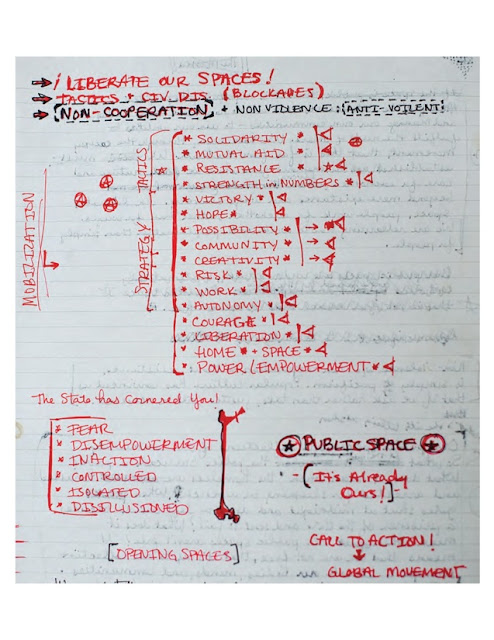 ¡ LIBERATE OUR SPACES!
TACTICS + CIV. DIS. (BLOCKADES)
NON-COOPERATION + NONVIOLENCE: ANTI-VOILENT
MOBILIZATION
TACTICS
STRATEGY
* SOLIDARITY *
* MUTUAL AID *
* RESISTANCE *
* STRENGTH in NUMBERS *
* VICTORY *
* HOPE *
* POSSIBILITY *
* COMMUNITY *
* CREATIVITY *
* RISK *
* WORK *
* AUTONOMY *
* COURAGE *
* LIBERATION *
* HOME * + SPACE *
* POWER/EMPOWERMENT *
The State has Cornered You!
* FEAR
* DISEMPOWERMENT
* INACTION
* CONTROLLED
* ISOLATED
* DISILLUSIONED
[OPENING SPACES]
PUBLIC SPACE
- (It's Already
Ours!) -
CALL TO ACTION!
GLOBAL MOVEMENT